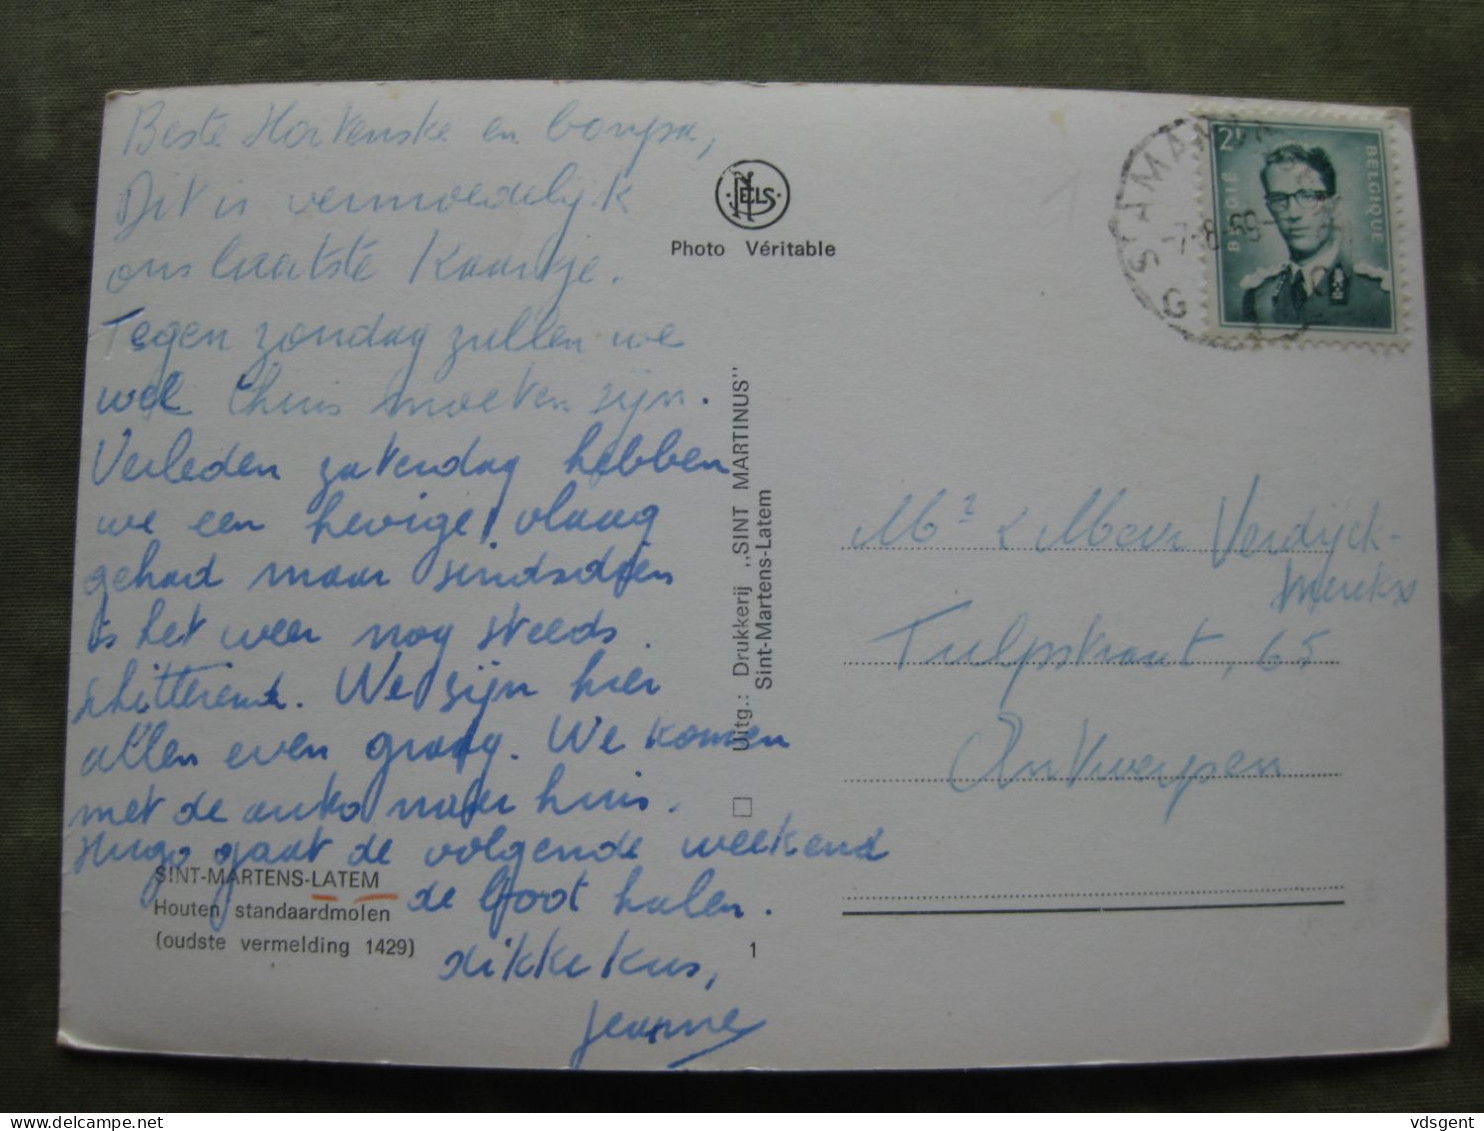 Beste Hortenske en bompa,
Dit is vermoedelijk
ons laatste kaartje.
Tegen zondag zullen we
wel thuis moeten zijn.
Verleden zaterdag hebben
we een hevige vlaag
gehad maar sindsdien
is het weer nog steeds
schitterend. We zijn hier
allen even graag. We komen
met de auto naar huis.
Hugo gaat de volgende weekend
de boot halen.
dikke kus,
Jeanne
SINT-MARTENS-LATEM
Houten standaardmolen
(oudste vermelding 1429)
NELS
Photo Véritable
Uitg.: Drukkerij ,,SINT MARTINUS"
Sint-Martens-Latem
1
ST AMAN
-7-8
G
2F
BELGIË
BELGIQUE
Mr & Mevr Verdijck-
Merckx
Tulpstraat, 65
Antwerpen
delcampe.net
vdsgent